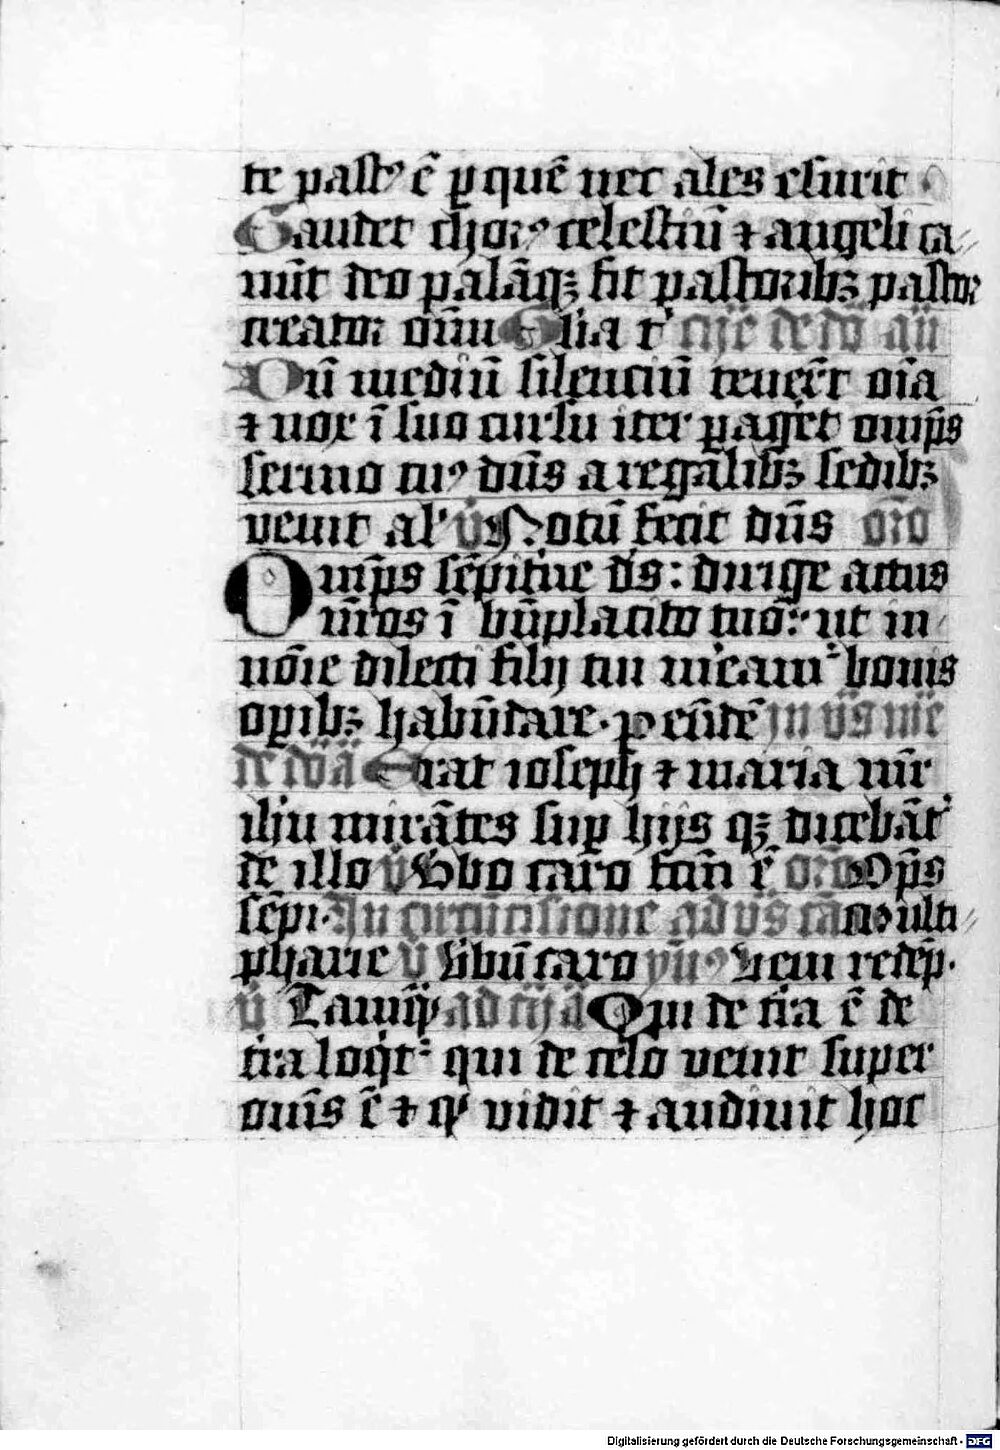 te past⁹ ē ꝑ quē nec ales esurit
Gaudet chor⁹ celestiū ⁊ angeli ca-
nūt deo palāqꝫ fit pastoribꝫ pastor
creator om̄iū Glīa t' 
Dū mediū silenciū tenerēt oīa
⁊ nox ī suo cursu iter ꝑaget omp̄s
sermo tu⁹ dn̄s a regalibꝫ sedibꝫ
venit al' v̄ Notū fecit dn̄s or̄o
Omp̄s sēpitne ds̄: dirige actus
nr̄os ī bn̄placito tuo: ut in
noīe dilecti filij tui meam᷑ bonis
oꝑibꝫ habūdare. p eūdē
Erat ioseph ⁊ maria mr̄
ihū mirātes suꝑ hijs qꝫ dicebāt᷑
de illo v̄ Vbo caro fcm̄ ē or̄o Omp̄s
sēpi. In circūcisione ad vs̄ Multi-
pharie v̄ Vbū caro ym⁹ Veni redēp.
v̄ Tamqͣ ad Qui de tr̄a ē de
tr̄a loqit᷑ qui de celo venit super
om̄s ē ⁊ qͩ vidit ⁊ audiuit hoc
Digitalisierung gefördert durch die Deutsche Forschungsgemeinschaft - DFG